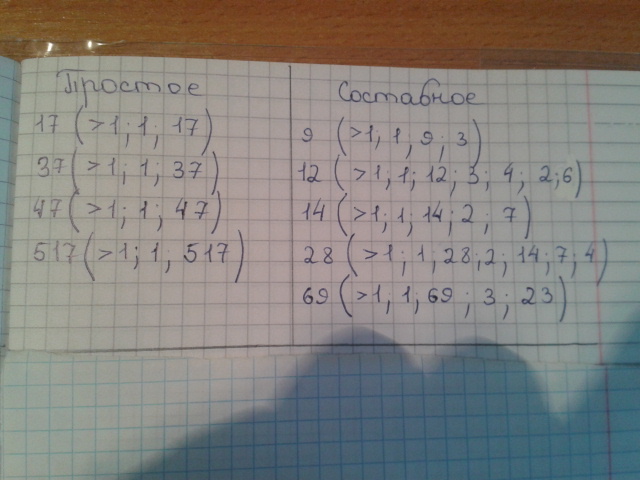 Простое
17 (>1; 1; 17)
37 (>1; 1; 37)
47 (>1; 1; 47)
517 (>1; 1; 517)
Составное
9 (>1; 1, 9; 3)
12 (>1, 1; 12; 3; 4; 2; 6)
14 (>1; 1; 14; 2; 7)
28 (>1; 1, 28; 2; 14; 7; 4)
69 (>1, 1; 69; 3; 23)